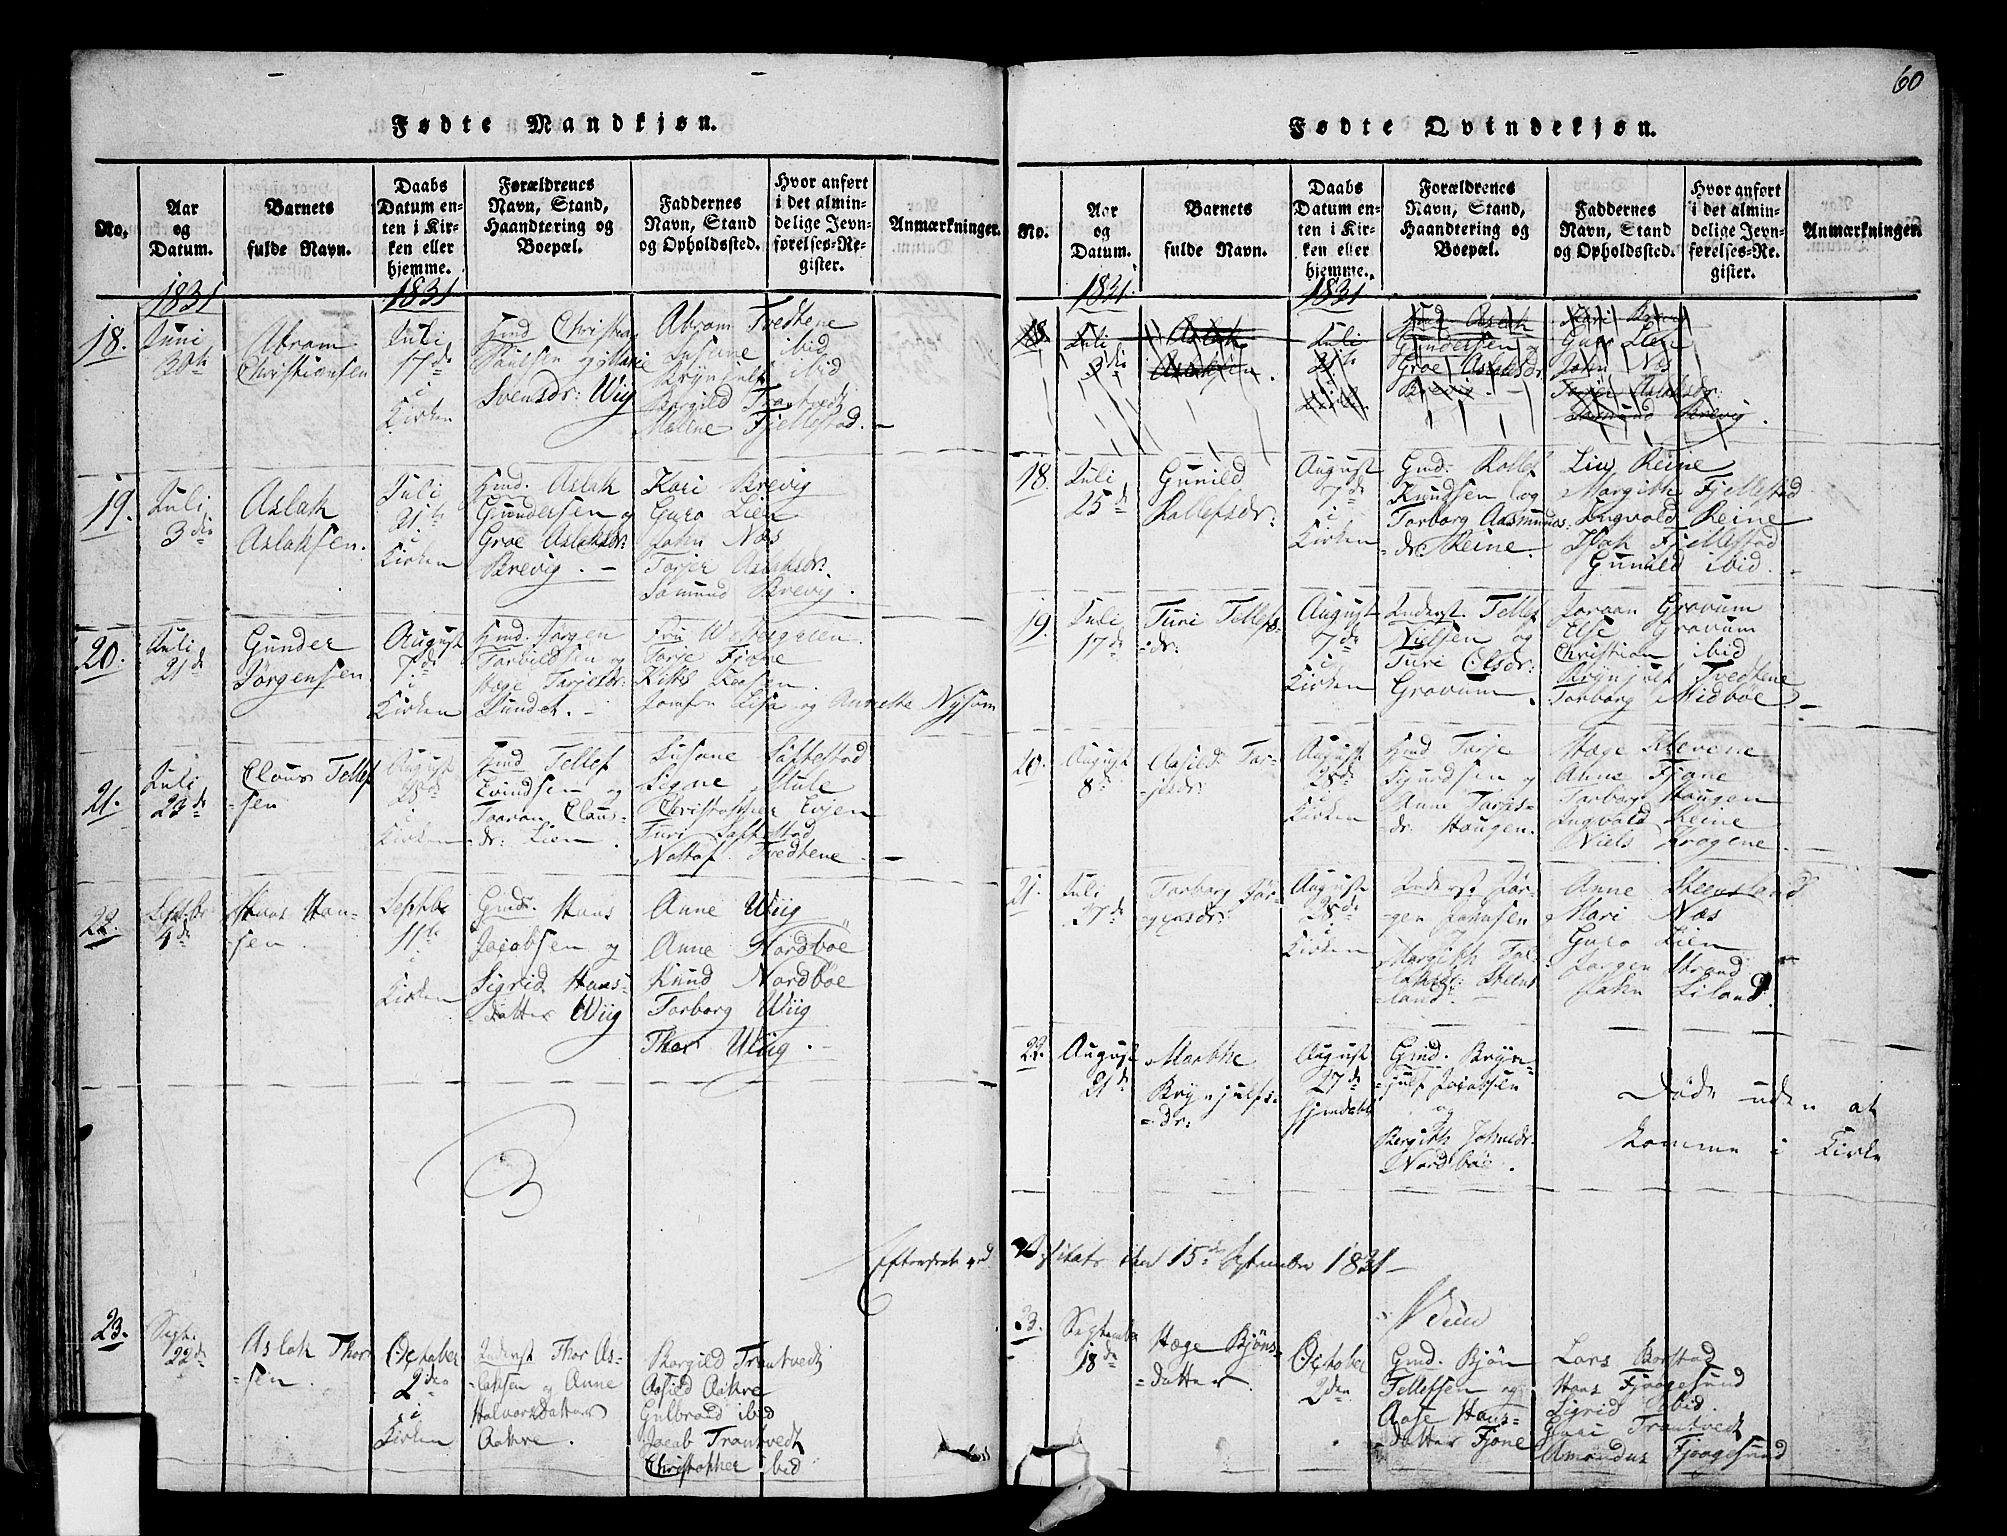 60
Fødte Mandkjøn.
No.
Aar og Datum.
Barnets fulde Navn.
Daabs Datum enten i Kirken eller hjemme.
Forældrenes Navn, Stand, Haandtering og Boepæl.
Faddernes Navn, Stand og Opholdssted.
Hvor anført i det almindelige Jevnførelses-Register.
Anmærkninger.
1831
1831
18.
Juni
30th
Abram
Christiansen
Juli
17de
i
Kirken
Gmd Christian
Poulsen og Marie
Svensdr: Wiig
Abram Tvedtene
Susane ibid
Brynjulf ibid
Borgild Trontvedt
Malene Fjellestad.
19.
Juli
3die
Aslak
Aslaksen.
Juli
21te
i
Kirken
Gmd. Aslak
Gundersen og
Groe Aslaksdr:
Brevig.
Kari Brevig
Guro Lien
John Næs
Torjer Aslaksdr:
Samund Brevig.
20.
Juli
21de
Gunder
Jörgensen
August
7de
i
Kirken
Gmd. Jörgen
Torvildsen og
Hæge Tarjesdr:
Sundet.
Fru
Tarje Fjone
Jomfru Elisa og Annette Nysom
21.
Juli
23de
Claus Tellef
=sen
August
28de
i
Kirken
Gmd Tellef
Evindsen og
Taaran Claus=
=dr: Lien.
Susane Saftestad
Signe Hule
Christopher Evjen
Turi Saftestad
Nottof Tvedtene
22.
Septbr
4de
Hans Han=
sen.
Septbr
11te
i
Kirken
Gmd: Hans
Jacobsen og
Sigrid Hans=
datter Wiig
Anne Wiig
Anne Nordböe
Knud Nordböe
Torborg Wiig
Thor Wiig.
23.
Sept.
22de
Aslak Thor
=sen.
October
2den
i
Kirken
Inderst Thor As=
=laksen og Anne
Halvorsdatter
Aakre.
Borgild Trontvedt
Aasild Aakre
Gulbrand ibid
Jacob Trontvedt
Christopher ibid
Fødte Qvindekjøn.
No.
Aar og Datum.
Barnets fulde Navn.
Daabs Datum enten i Kirken eller hjemme.
Forældrenes Navn, Stand, Haandtering og Boepæl.
Faddernes Navn, Stand og Opholdssted.
Hvor anført i det almindelige Jevnførelses-Register.
Anmærkninger.
1831
1831
18
Juli
3die
Aslak
Aslaksen.
Juli
21te
i
Kirken
Gmd. Aslak
Gundersen og
Groe Aslaksdr
Brevig.
Kari Brevig
Guro Lien
John Næs
Torjer Aslaksdr:
Samund Brevig.
18.
Juli
25de
Gunild
Rollefsdr:
August
7de
i
Kirken
Gmd: Rollef
Knudsen og
Torborg Aasmunds
=dr: Reine.
Liv Reine
Margith Fjellestad
Ingvald Reine
Isak Fjellestad
Gunild ibid.
19.
Juli
17de
Turi Tellefs
=dr:
August
7de
i
Kirken
Inderst Tellef
Nielsen og
Turi Olsdr:
Gravum
Joraan Gravum
Else Gravum
Christian ibid
Brynjulf Tvedtene
Torborg Midböe
20.
August
8de
Aasild Tar=
=jesdr:
August
28de
i
Kirken
Gmd Tarje
Sigurdsen og
Anne Tarjes=
dr: Haugen.
Hæge Klevene
Anne Fjone
Torborg Haugen
Ingvald Reine
Niels Krogene
21.
Juli
27de
Torborg Jör=
=gensdr:
August
28de
i
Kirken
Inderst Jör=
=gen Johnsen
Margith
Steens
=land.
Anne Steensland
Mari Næs
Guro Lien
Jorgen Strand
John Liland.
22.
August
21de
Marthe
Brynjulfs=
=dr:
August
27de
hjemdöbt
Gmd. Bryn=
=julf Jacobsen
og
Bergith Johnsdr
Nordböe.
Døde uden at
komme i Kirke
Visitats den 15de September 1831
23.
September
18de
Hæge Bjöns=
=datter.
October
2den
Gmd. Bjön
Tellefsen og
Aase Hans=
datter Fjone
Lars Borstad
Hans Fjaagesund
Sigrid ibid.
Trontvedt
Amondus Fjaagesund